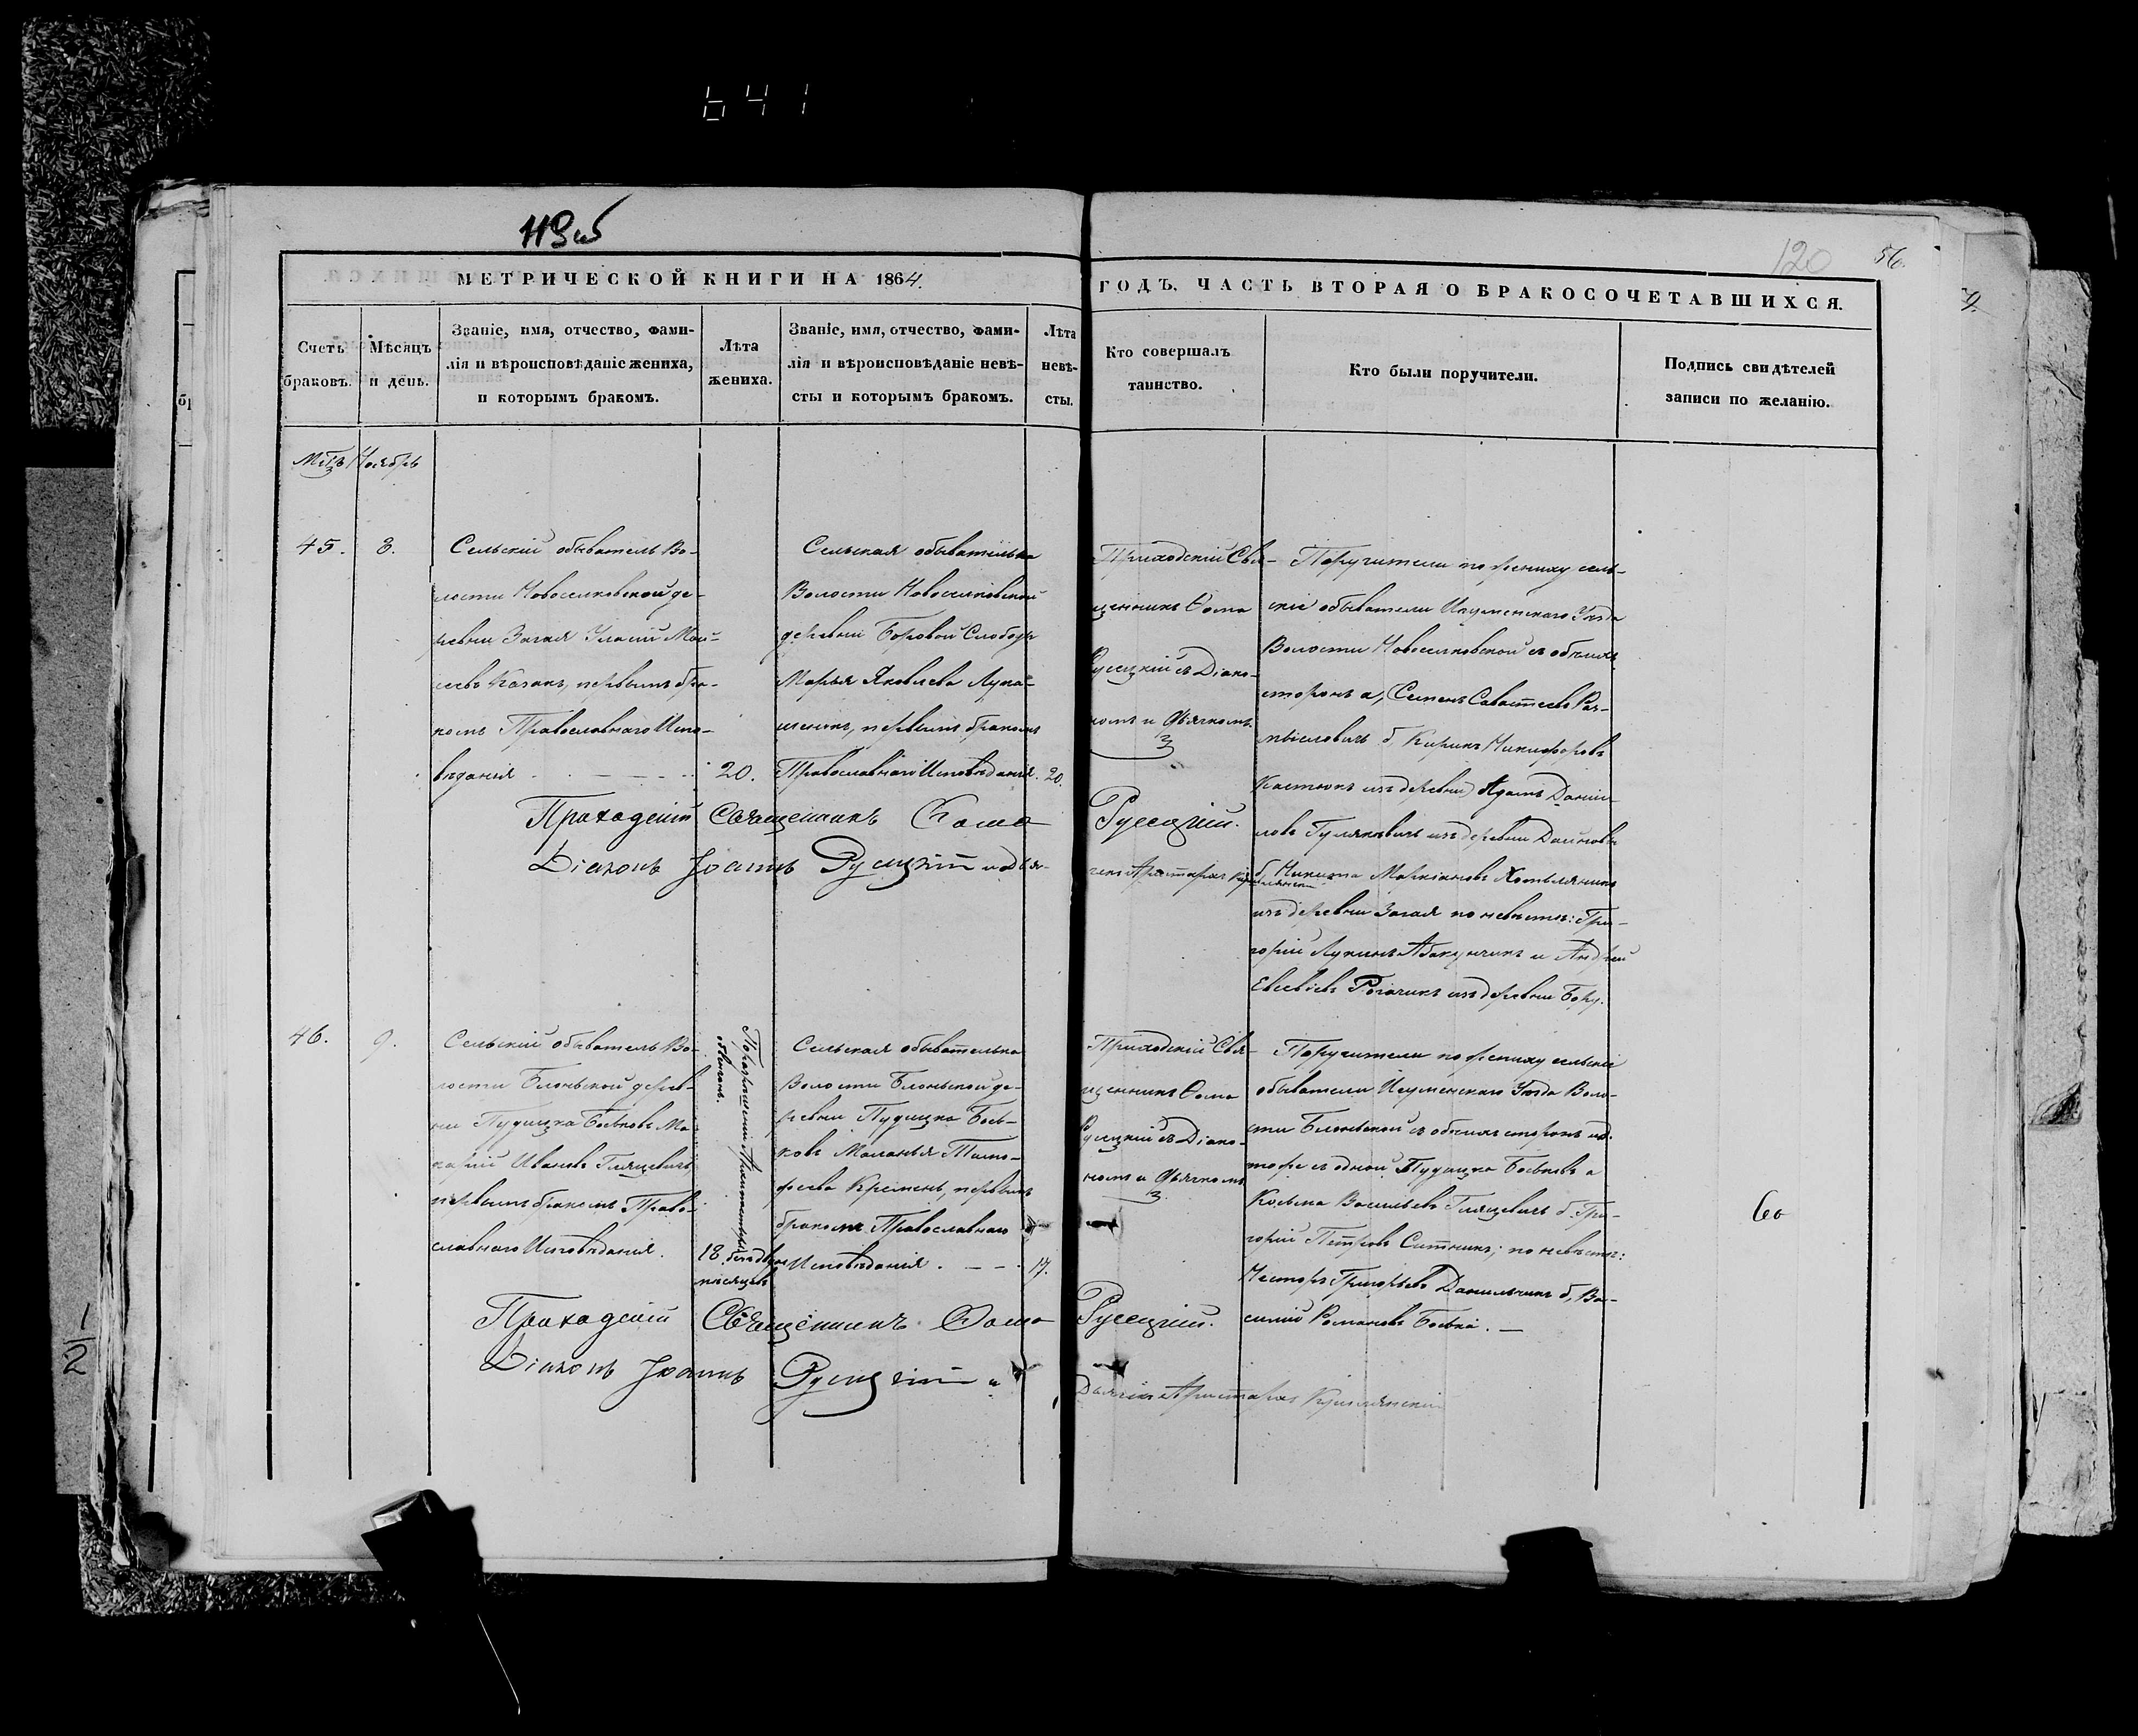 641
119 об
120
56.
МЕТРИЧЕСКОЙ КНИГИ НА 1864.
ГОДЪ, ЧАСТЬ ВТОРАЯ О БРАКОСОЧЕТАВШИХСЯ.
Счетъ браковъ.
Мѣсяцъ и день.
Званіе, имя, отчество, фами-
лія и вѣроисповѣданіе жениха,
и которымъ бракомъ.
Лѣта жениха.
Званіе, имя, отчество, фами-
лія и вѣроисповѣданіе невѣ-
сты и которымъ бракомъ.
Лѣта невѣ-
сты.
Кто совершалъ
таинство.
Кто были поручители.
Подпись свидѣтелей
записи по желанію.
Ноябрь
45.
8.
Сельскій обыватель Во-
лости Новоселковской де-
ревни Загая Мои-
сеевъ Казакъ, первымъ бра-
комъ Православнаго Испо-
вѣданія
20.
Сельская обывателька
Волости Новоселковской
деревни Боровой Слободы
Марья Яковлева Лука-
шенокъ, первымъ бракомъ
Православнаго Исповѣданія.
20.
Приходскій Свя-
щенникъ Ѳома
Русецкій съ Діако-
номъ и Дьячкомъ
Поручители по жениху сель-
скіе обыватели Игуменскаго Уѣзда
Волости Новоселковской съ обѣихъ
сторонъ а, Семенъ Саватеевъ Раз-
мысловичъ б, Киріикъ Никифоровъ
Костюкъ изъ деревни Адамъ Дани-
ловъ Гуляковичъ изъ деревни
б, Никита Маркіановъ
изъ деревни Загая по невѣстѣ: Гри-
горій Лукинъ Абакунчикъ и Андрей
Евсевіевъ Рогачикъ изъ деревни
Приходскій Священникъ Ѳома Русецкій.
Діаконъ Іоаннъ Русецкій и Дья-
чекъ Аристархъ
46.
9.
Сельскій обыватель Во-
лости Блоньской дерев-
ни Пудицка Боьковъ Ма-
карій Ивановъ Гляцевичъ,
первымъ бракомъ Право-
славнаго Исповѣданія.
18 безъ двухъ
мѣсяцевъ
Сельская обывателька
Волости Блоньской де-
ревни Пудицка Бось-
ковъ Маланья Тимо-
феева Кремень, первымъ
бракомъ Православнаго
Исповѣданія.
17.
Приходскій Свя-
щенникъ Ѳома
Русецкій съ Діако-
номъ и Дьячкомъ
Поручители по жениху сельскіе
обыватели Игуменскаго Уѣзда Воло-
сти Блоньской съ обѣихъ сторонъ
тоже съ одной Пудицка Боьковъ а
Косьма Васильевъ Гляцевичъ б. Гри-
горій Петровъ Ситникъ; по невѣстѣ:
Несторъ Григорьевъ Данильчикъ б, Ва-
силій Романовъ
60
Приходскій Священникъ Ѳома Русецкій.
Діаконъ Іоаннъ Русецкій и
Дьячекъ Аристархъ
1/2